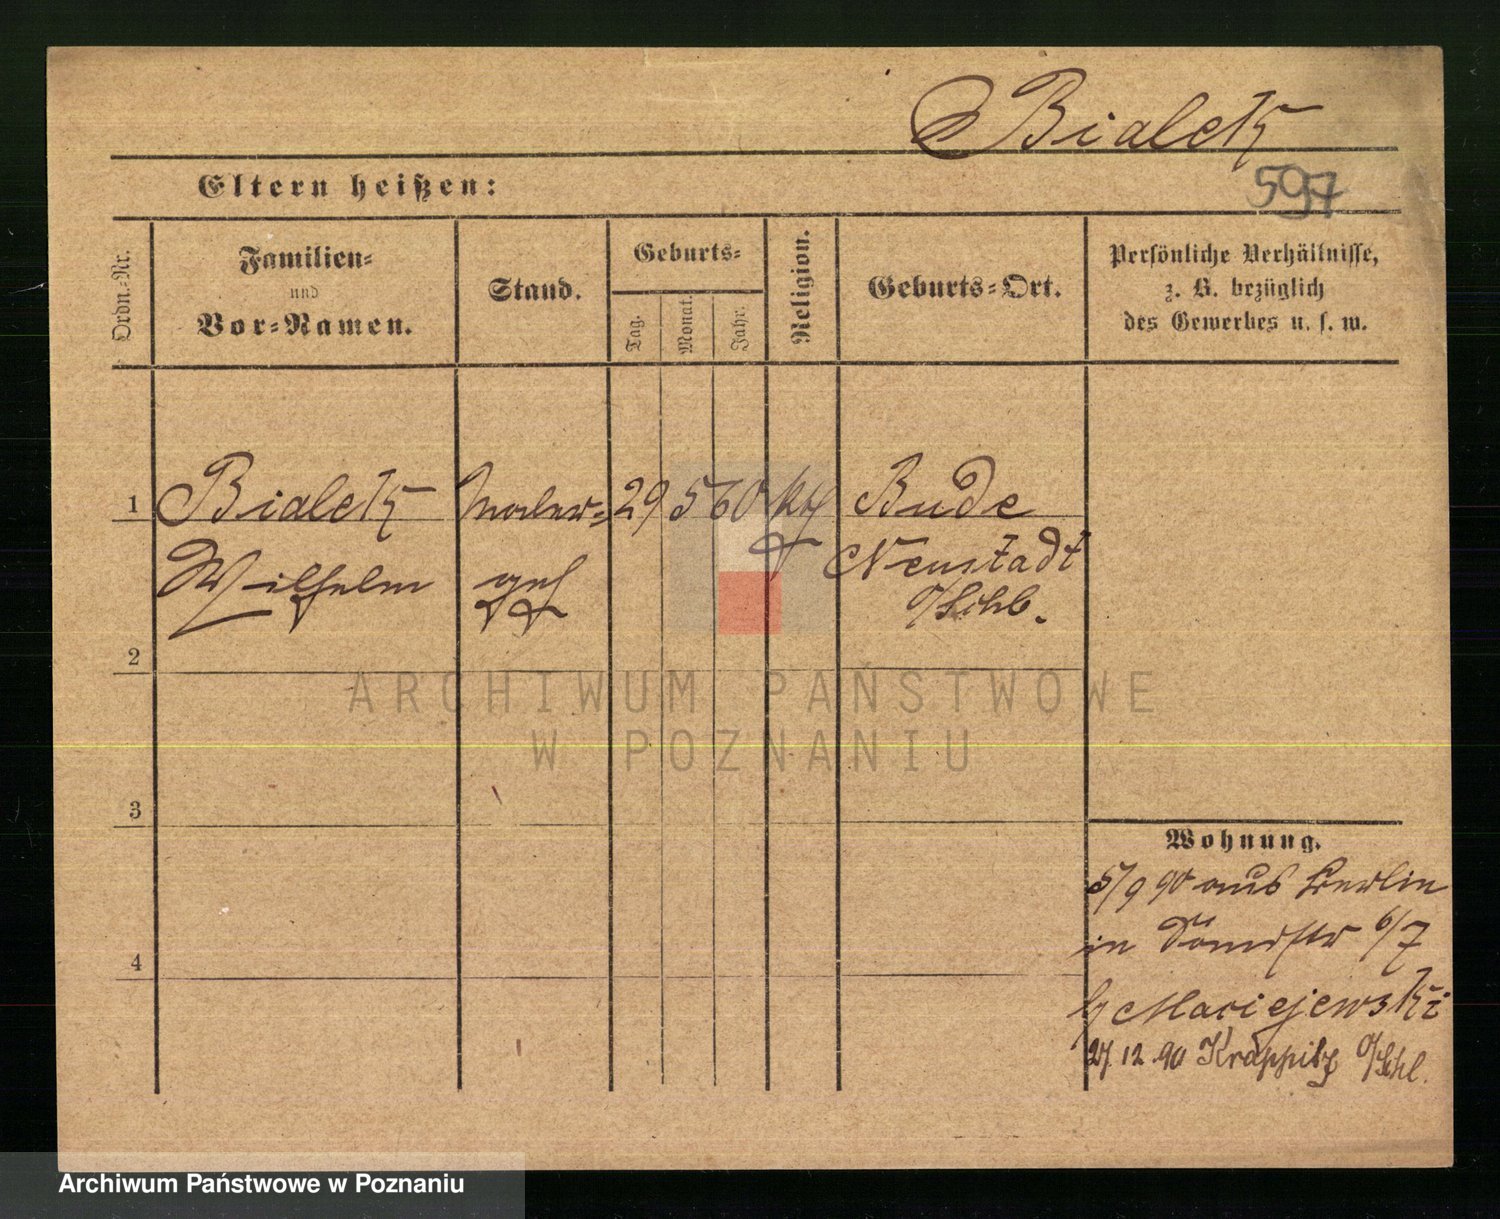 Bialek
597
Eltern heißen:
Ordn.-Nr.
Familien-
und
Vor-Namen.
Stand.
Geburts-
Tag.
Monat.
Jahr.
Religion.
Geburts-Ort.
Persönliche Verhältnisse,
z. B. bezüglich
des Gewerbes u. s. w.
1
Bialek
Wilhelm
Maler-
geh
29
5
60
kth
Bude
Neustadt
O/Schl.
2
3
4
Wohnung.
5/9 90 aus Berlin
in 6/7
b/ Maciejewski
27.12.90 Krappitz O/Schl.
ARCHIWUM PAŃSTWOWE
W POZNANIU
Archiwum Państwowe w Poznaniu